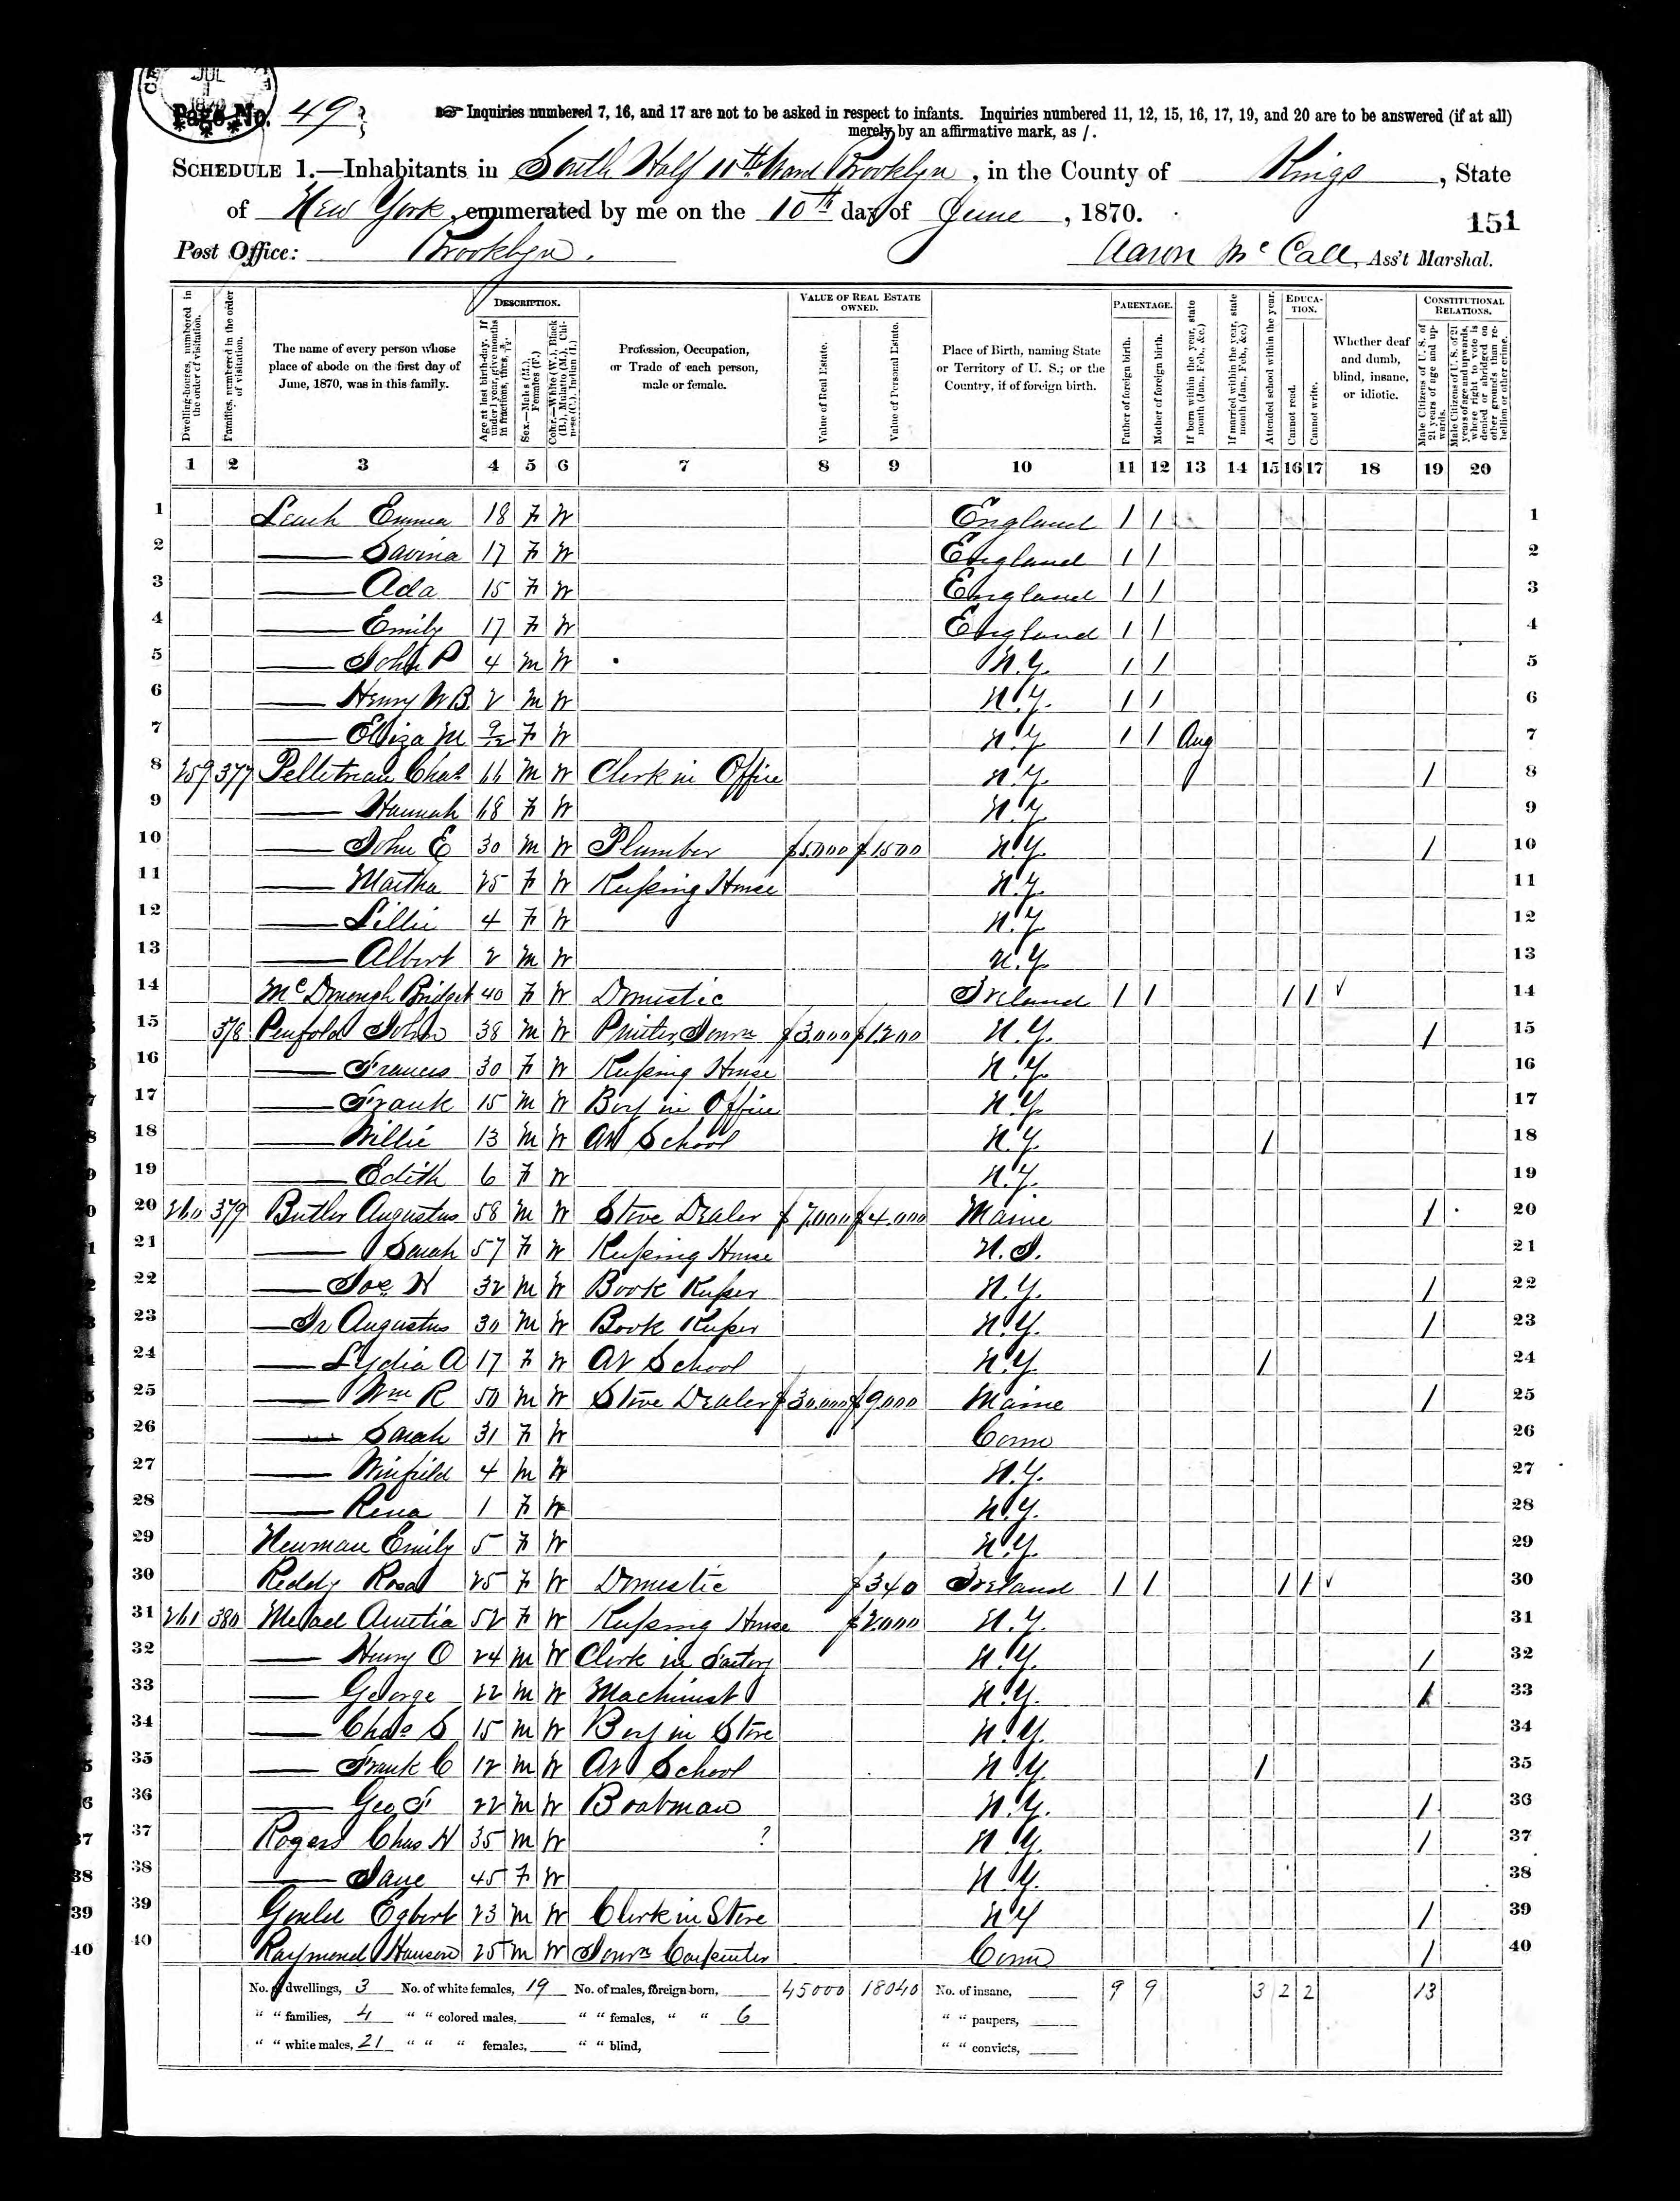 JUL
1870
Page No. 49
☞ Inquiries numbered 7, 16, and 17 are not to be asked in respect to infants. Inquiries numbered 11, 12, 15, 16, 17, 19, and 20 are to be answered (if at all)
merely by an affirmative mark, as /.
SCHEDULE 1.—Inhabitants in South Half 11th Ward Brooklyn, in the County of Kings, State
of New York, enumerated by me on the 10th day of June, 1870.
151
Post Office: Brooklyn. Aaron McCall, Ass't Marshal.
Dwelling-houses, numbered in the order of visitation.
Families, numbered in the order of visitation.
The name of every person whose place of abode on the first day of June, 1870, was in this family.
DESCRIPTION.
Age at last birth-day. If under 1 year, give months in fractions, thus, 3/12.
Sex.—Males (M.), Females (F.)
Color.—White (W.), Black (B.), Mulatto (M.), Chinese (C.), Indian (I.)
Profession, Occupation, or Trade of each person, male or female.
VALUE OF REAL ESTATE OWNED.
Value of Real Estate.
Value of Personal Estate.
Place of Birth, naming State or Territory of U. S.; or the Country, if of foreign birth.
PARENTAGE.
Father of foreign birth.
Mother of foreign birth.
If born within the year, state month (Jan., Feb., &c.)
If married within the year, state month (Jan., Feb., &c.)
Attended school within the year.
EDUCATION.
Cannot read.
Cannot write.
Whether deaf and dumb, blind, insane, or idiotic.
CONSTITUTIONAL RELATIONS.
Male Citizens of U. S. of 21 years of age and upwards.
Male Citizens of U. S. of 21 years of age and upwards, where right to vote is denied or abridged on other grounds than rebellion or other crime.
1 2 3 4 5 6 7 8 9 10 11 12 13 14 15 16 17 18 19 20
1 Leach Emma 18 F W England / / 1
2 — Savina 17 F W England / / 2
3 — Ada 15 F W England / / 3
4 — Emily 17 F W England / / 4
5 — John P 4 M W N.Y. / / 5
6 — Henry W B 2 M W N.Y. / / 6
7 — Eliza M 9/12 F W N.Y / / Aug 7
8 259 377 Pelletreau Chas 66 M W Clerk in Office N.Y / 8
9 — Hannah 68 F W N.Y. 9
10 — John E 30 M W Plumber $5000 $1500 N.Y. / 10
11 — Martha 25 F W Keeping House N.Y. 11
12 — Lillie 4 F W N.Y. 12
13 — Albert 2 M W N.Y. 13
14 McDonough Bridget 40 F W Domestic Ireland / / / / √ 14
15 378 Penfold John 38 M W Printer, Journ $3,000 $1200 N.Y. / 15
16 — Frances 30 F W Keeping House N.Y. 16
17 — Frank 15 M W Boy in Office N.Y. 17
18 — Willie 13 M W At School N.Y. / 18
19 — Edith 6 F W N.Y. 19
20 260 379 Butler Augustus 58 M W Stove Dealer $7,000 $4,000 Maine / 20
21 — Sarah 57 F W Keeping House N.J. 21
22 — Jos. H 32 M W Book Keeper N.Y. / 22
23 — Jr Augustus 30 M W Book Keeper N.Y. / 23
24 — Lydia A 17 F W At School N.Y. / 24
25 — Wm R 50 M W Stove Dealer $30,000 $9,000 Maine / 25
26 — Sarah 31 F W Conn 26
27 — Winfield 4 M W N.Y. 27
28 — Rena 1 F W N.Y. 28
29 Newman Emily 5 F W N.Y. 29
30 Reddy Rosa 25 F W Domestic $340 Ireland / / / / √ 30
31 261 380 Amelia 52 F W Keeping House $2,000 N.Y. 31
32 — Henry O 24 M W Clerk in Factory N.Y. / 32
33 — George 22 M W Machinist N.Y. / 33
34 — Chas S 15 M W Boy in Store N.Y. 34
35 — Frank C 12 M W At School N.Y. / 35
36 — Geo F 22 M W Boatman N.Y. / 36
37 Rogers Chas H 35 M W ? N.Y. / 37
38 — Jane 45 F W N.Y. 38
39 Egbert 23 M W Clerk in Store N.Y / 39
40 Raymond Hanson 25 M W Journ Carpenter Conn / 40
No. of dwellings, 3 No. of white females, 19 No. of males, foreign born, 45000 18040 No. of insane, 9 9 3 2 2 13
" " families, 4 " " colored males, " " females, " " 6 " " paupers,
" " white males, 21 " " " females, " " blind, " " convicts,